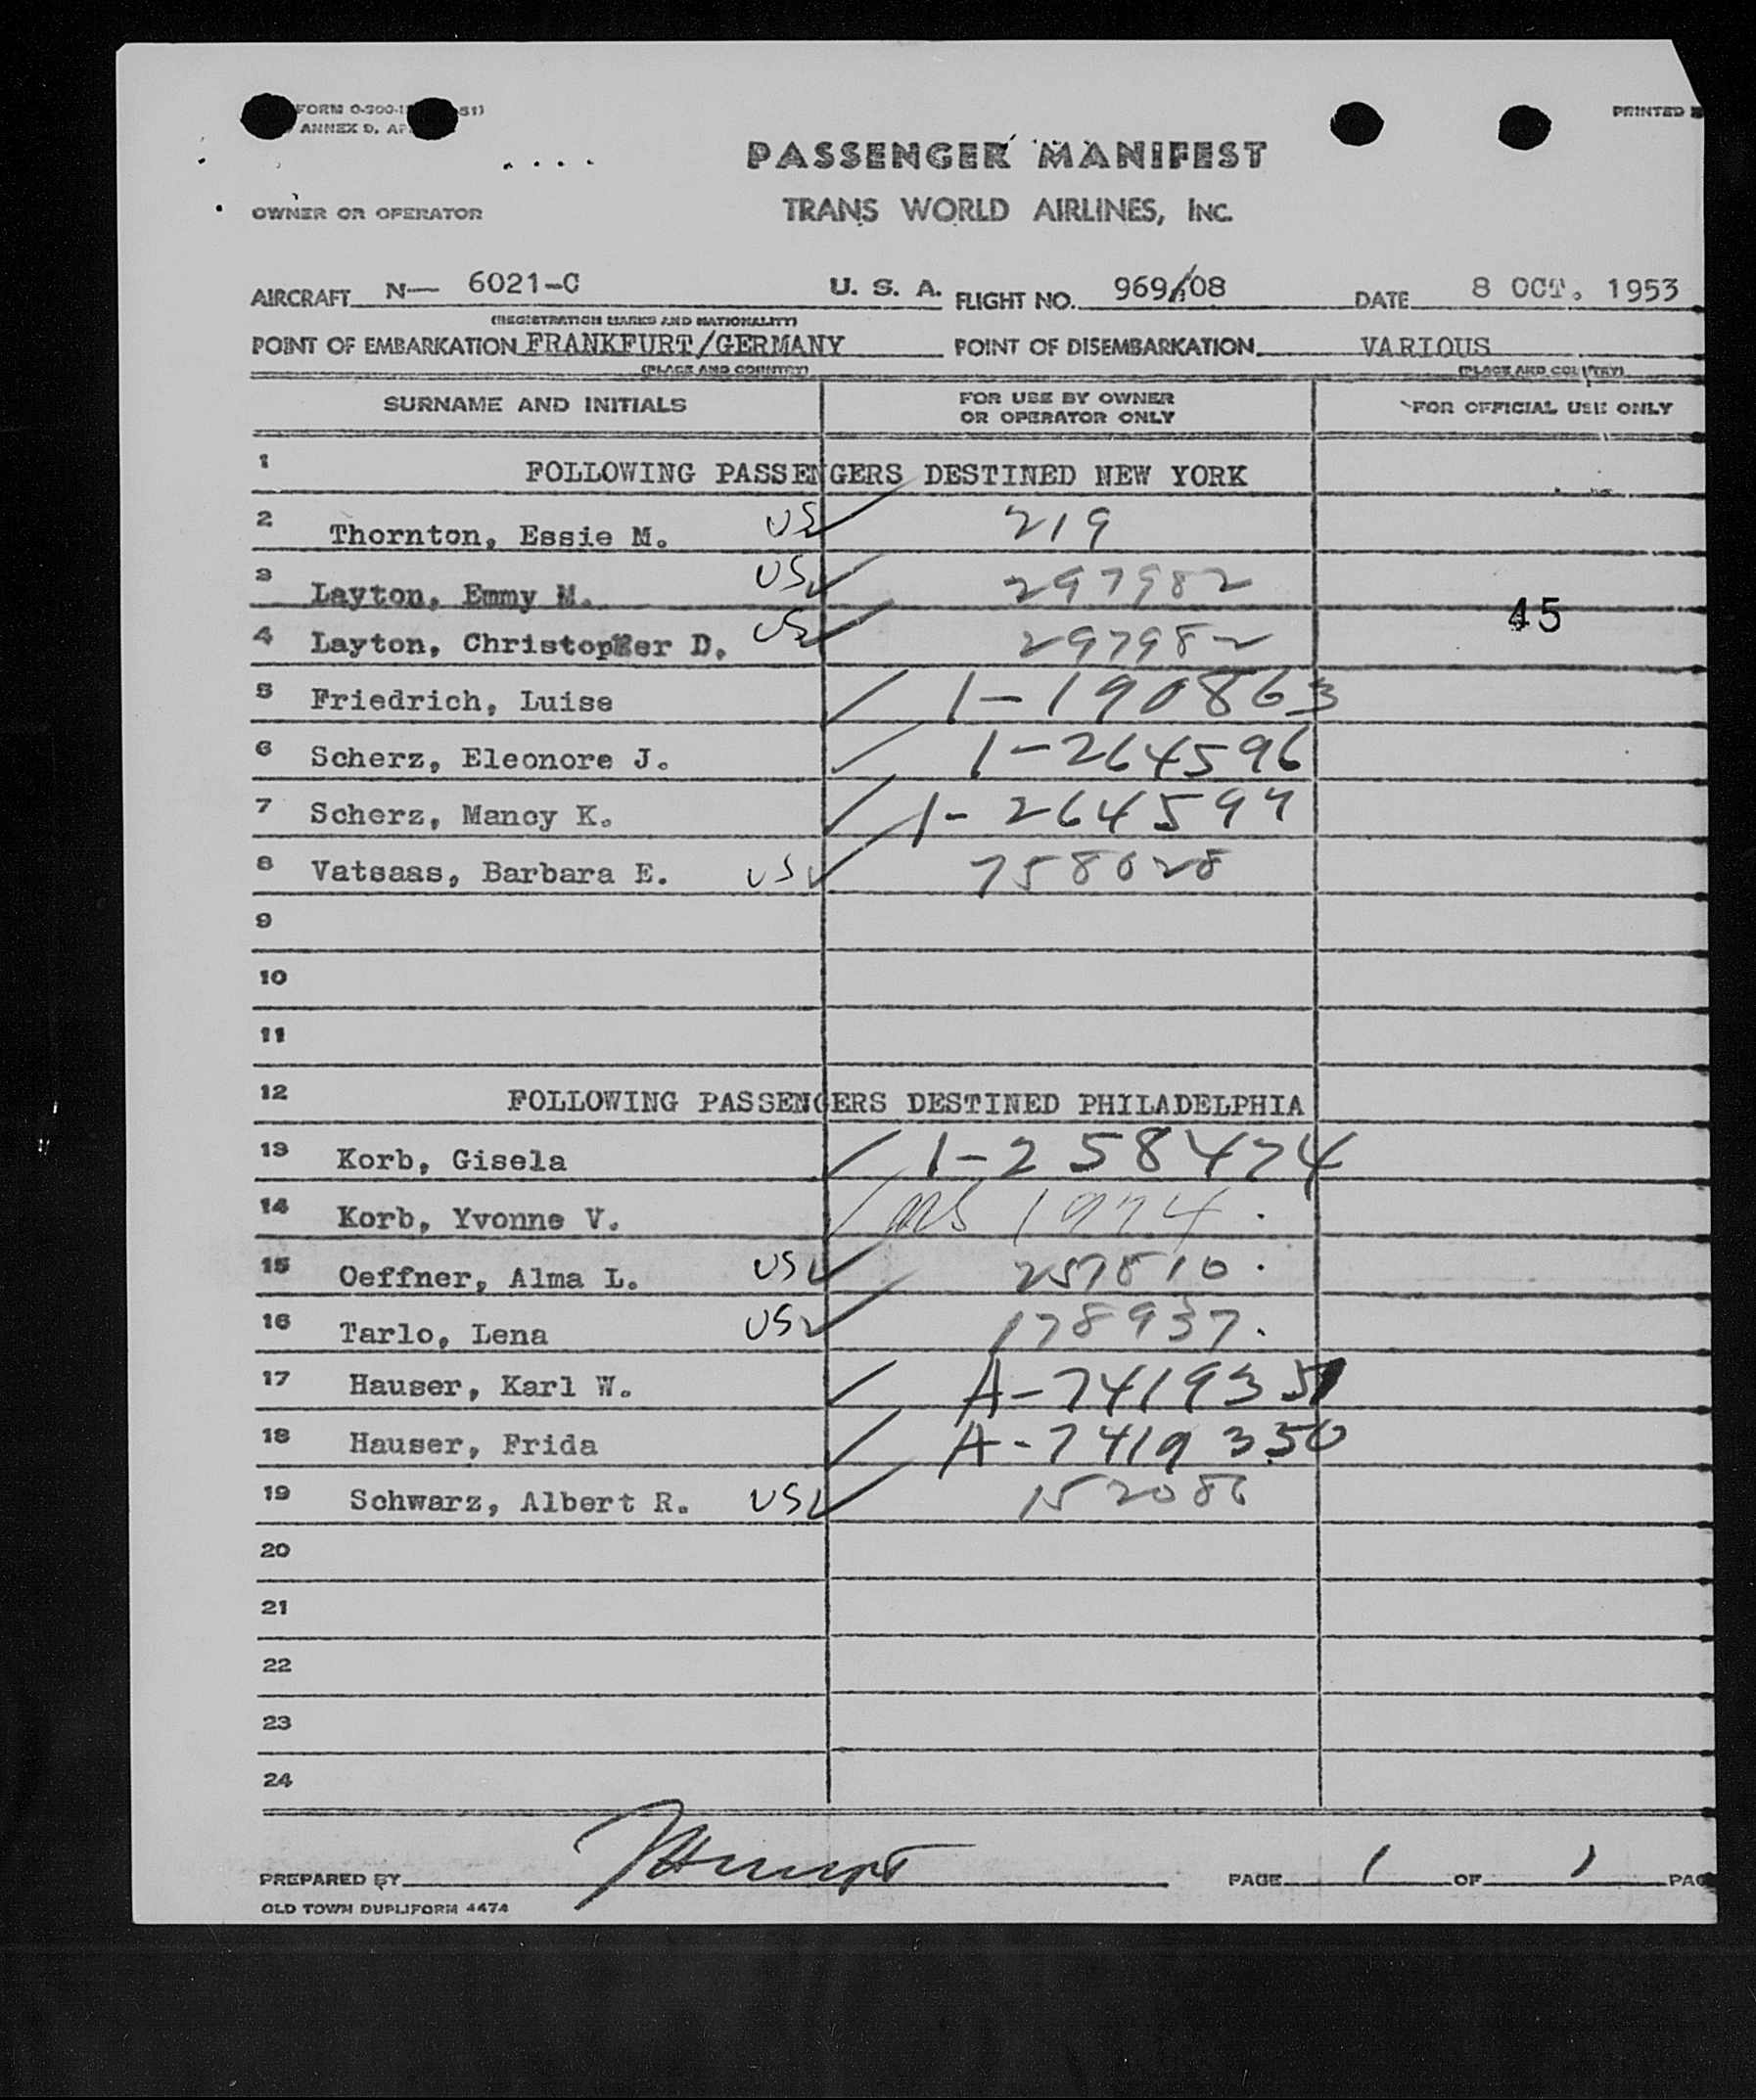 FORM O-300-1 51)
ANNEX D, AP
PRINTED
PASSENGER MANIFEST
OWNER OR OPERATOR
TRANS WORLD AIRLINES, INC.
AIRCRAFT N— 6021-C U. S. A. FLIGHT NO. 969/08 DATE 8 OCT. 1953
(REGISTRATION MARKS AND NATIONALITY)
POINT OF EMBARKATION FRANKFURT/GERMANY POINT OF DISEMBARKATION VARIOUS
(PLACE AND COUNTRY) (PLACE AND COUNTRY)
SURNAME AND INITIALS FOR USE BY OWNER OR OPERATOR ONLY FOR OFFICIAL USE ONLY
1 FOLLOWING PASSENGERS DESTINED NEW YORK
2 Thornton, Essie M. US 219
3 Layton, Emmy M. US 297982
45
4 Layton, Christopher D. US 297982
5 Friedrich, Luise 1-190863
6 Scherz, Eleonore J. 1-264596
7 Scherz, Mancy K. 1-264597
8 Vatsaas, Barbara E. US 758028
9
10
11
12 FOLLOWING PASSENGERS DESTINED PHILADELPHIA
13 Korb, Gisela 1-258474
14 Korb, Yvonne V. 1974.
15 Oeffner, Alma L. US 257810.
16 Tarlo, Lena US 178937.
17 Hauser, Karl W. A-7419351
18 Hauser, Frida A-7419350
19 Schwarz, Albert R. US 152086
20
21
22
23
24
PREPARED BY PAGE 1 OF 1 PAG
OLD TOWN DUPLIFORM 4474